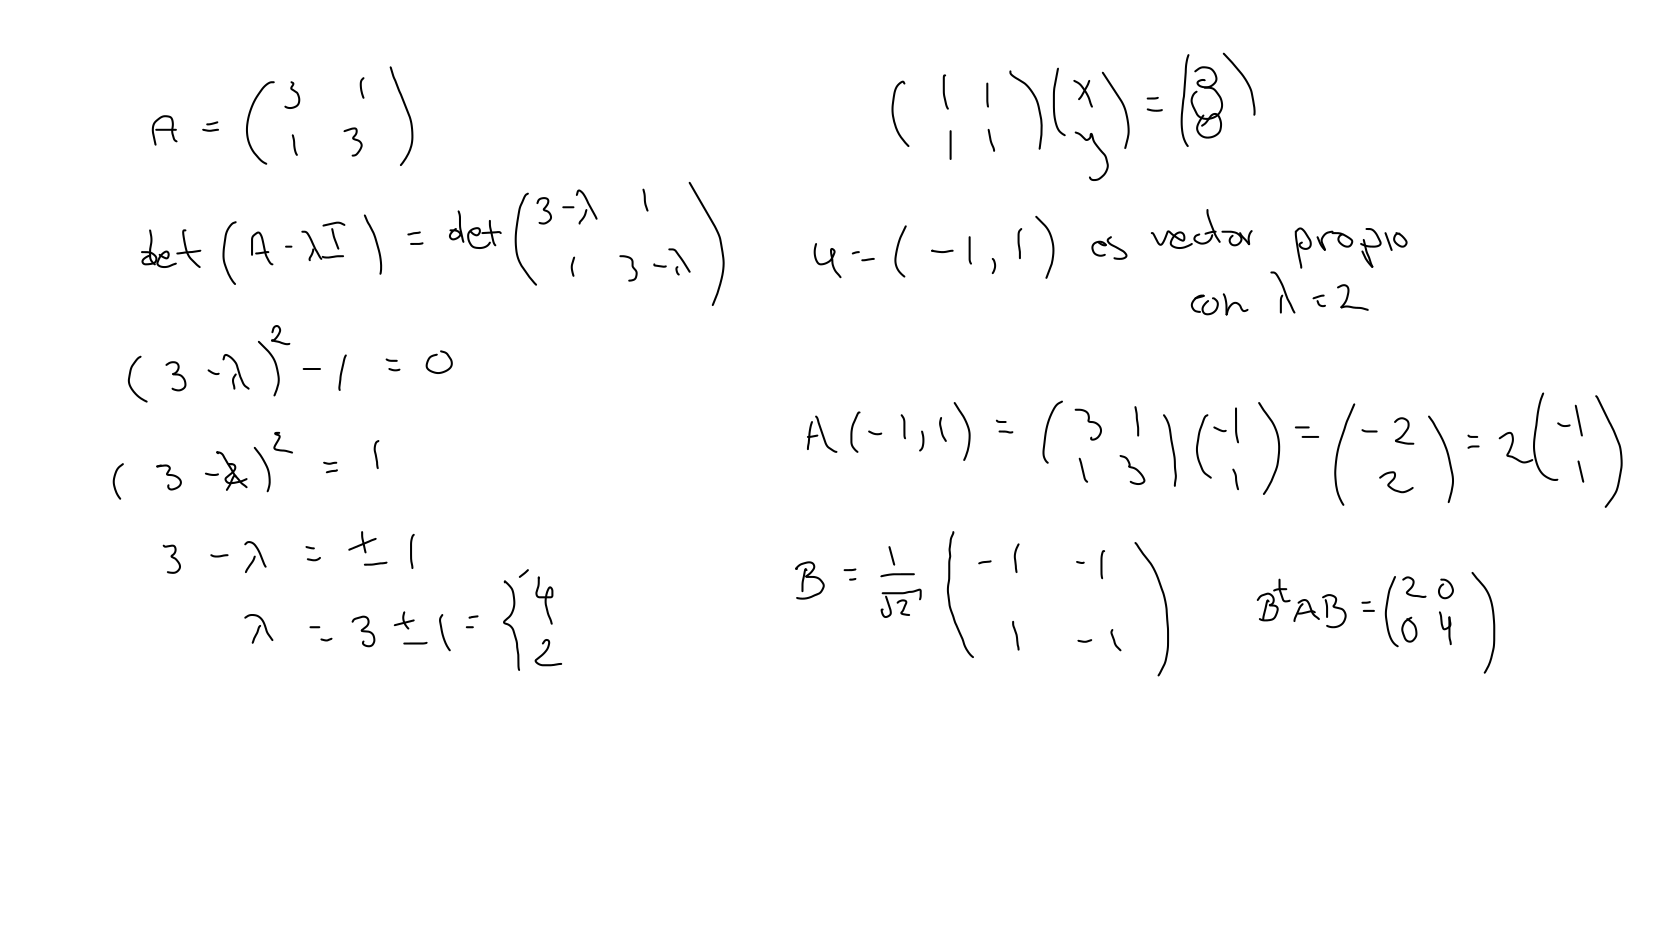 A = ( 3 1 ; 1 3 )
det (A - λI) = det ( 3-λ 1 ; 1 3-λ )
(3-λ)² - 1 = 0
(3-λ)² = 1
3 - λ = ± 1
λ = 3 ± 1 = { 4 ; 2
( 1 1 ; 1 1 ) ( x ; y ) =
u = (-1, 1) es vector propio
con λ = 2
A(-1, 1) = ( 3 1 ; 1 3 ) ( -1 ; 1 ) = ( -2 ; 2 ) = 2 ( -1 ; 1 )
B = 1/√2 ( -1 -1 ; 1 -1 ) BᵗAB = ( 2 0 ; 0 4 )